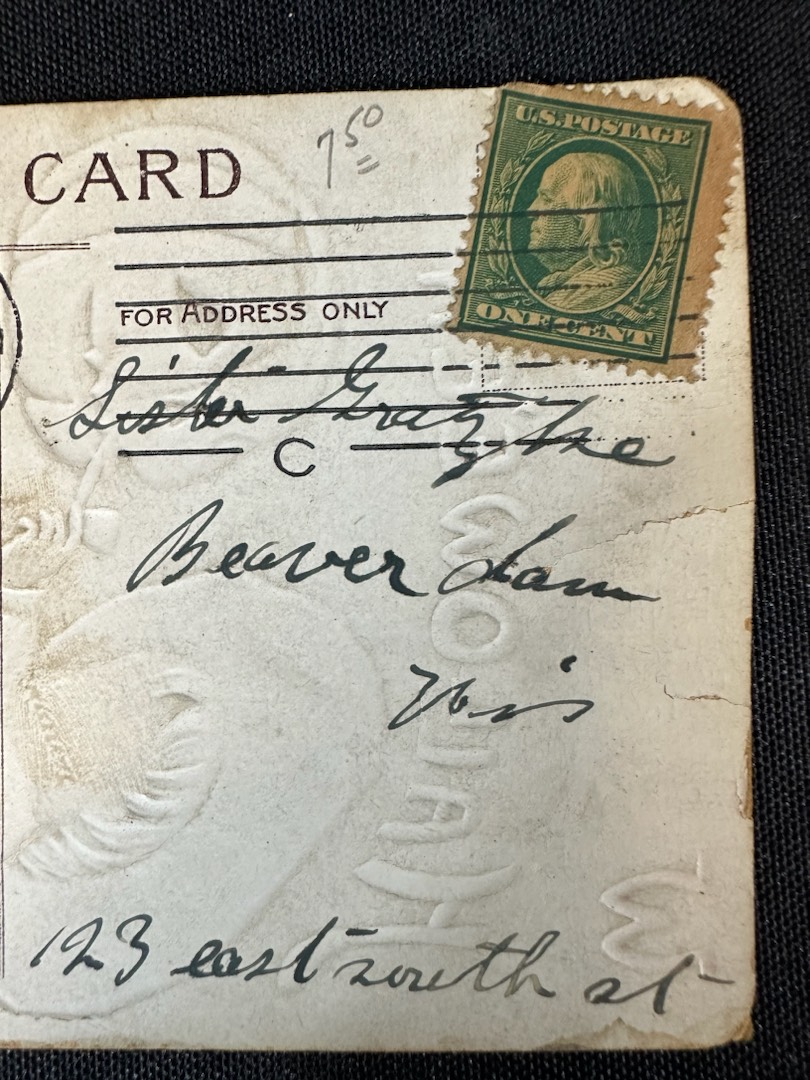 7 50
CARD
U.S. POSTAGE
FOR ADDRESS ONLY
ONE CENT
Sister
C
Beaver dam
Wis
123 east south st